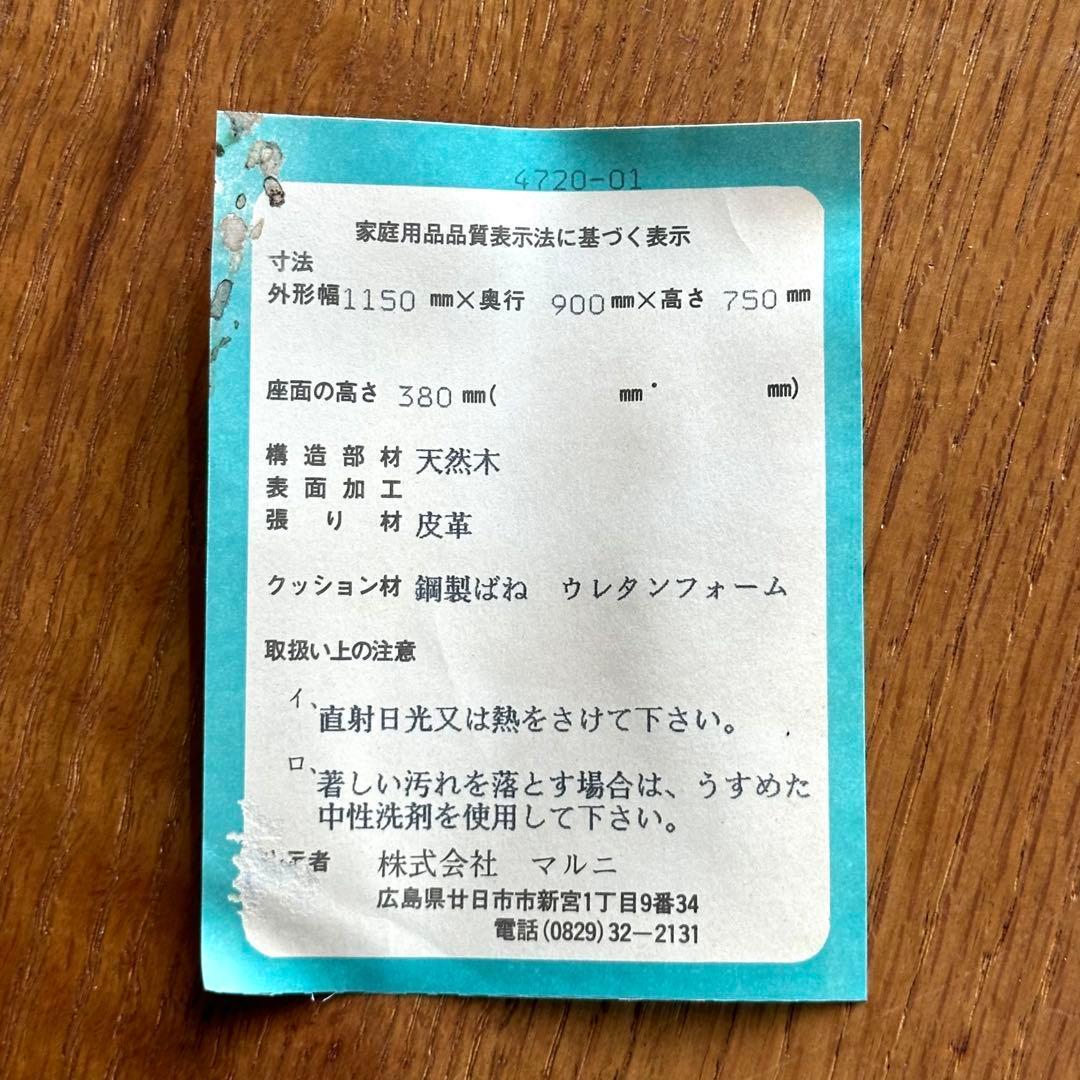 4720-01
家庭用品品質表示法に基づく表示
寸法
外形幅1150 mm×奥行 900mm×高さ 750mm
座面の高さ 380mm( mm・ mm)
構造部材 天然木
表面加工
張り材 皮革
クッション材 鋼製ばね ウレタンフォーム
取扱い上の注意
イ、直射日光又は熱をさけて下さい。
ロ、著しい汚れを落とす場合は、うすめた
中性洗剤を使用して下さい。
示者 株式会社 マルニ
広島県廿日市市新宮1丁目9番34
電話(0829)32―2131